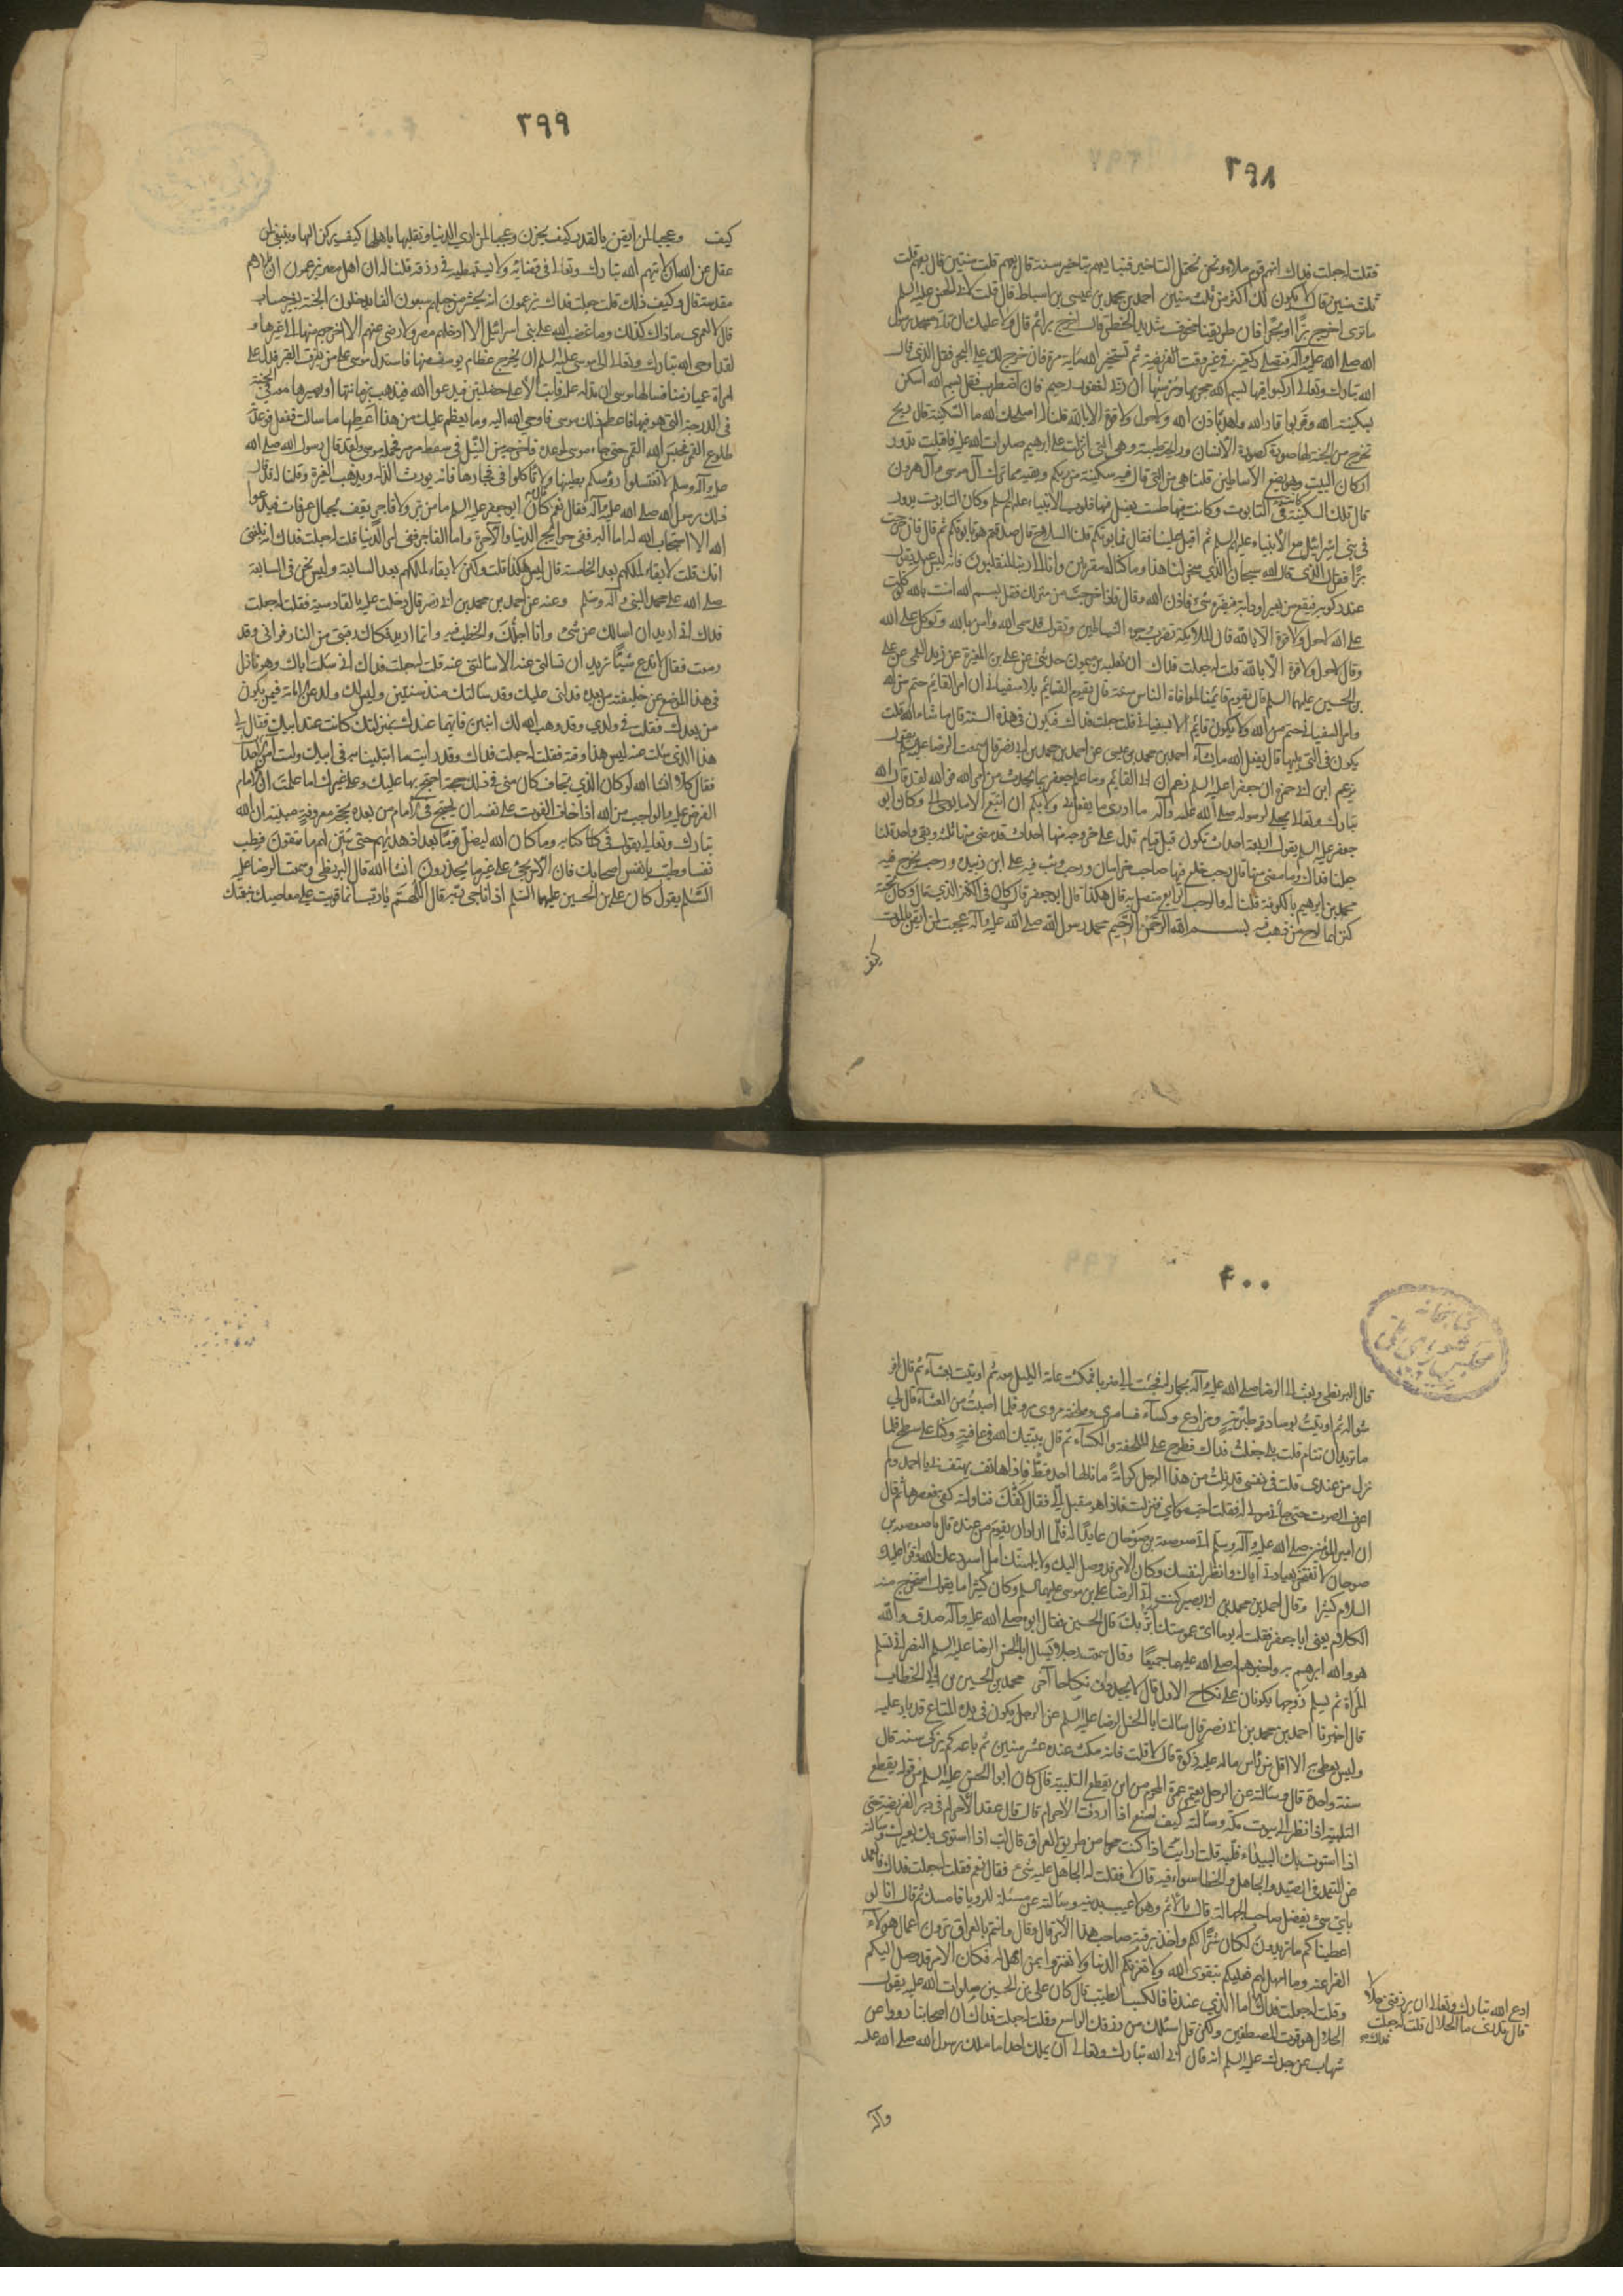 ٣٩٨
فقلت له جعلت فداك انهم قوم ملاء ونحن نحتمل التاخير فنبايعهم بتاخير سنة قال بعهم قلت سنتين قال بعهم قلت
ثلث سنين قال لا يكون لك اكثر من ثلث سنين احمد بن محمد بن عيسى بن اسباط قال قلت لابى الحسن عليه السلم
ما ترى اخرج برا او بحرا فان طريقنا مخوف شديد الخطر قال اخرج برا ثم قال ولا عليك ان تاتى مسجد رسول
الله صلى الله عليه وآله فتصلى ركعتين فى غير وقت الفريضة ثم تستخير الله مائة مرة فان خرج لك على البحر فقل الذى قال
الله تبارك وتعالى اركبوا فيها بسم الله مجريها ومرسيها ان ربى لغفور رحيم فان اضطرب فقل بسم الله اسكن
بسكينة الله وقر بوقار الله واهدأ باذن الله ولا حول ولا قوة الا بالله قلنا له اصلحك الله ما السكينة قال ريح
تخرج من الجنة لها صورة كصورة الانسان ورايحة طيبة وهى التى انزلت على ابرهيم صلوات الله عليه فاقبلت تدور
اركان البيت وهو يضع الاساطين قلنا هى من التى قال فيه سكينة من ربكم وبقية مما ترك آل موسى وآل هرون
قال تلك السكينة فى التابوت وكانت فيها طست يغسل فيها قلوب الانبياء عليهم السلم وكان التابوت يدور
فى بنى اسرائيل مع الانبياء عليهم السلم ثم اقبل علينا فقال فما تابوتكم قلنا السلاح قال صدقتم هو تابوتكم ثم قال فان خرجت
برا فقل الذى قال الله سبحان الذى سخر لنا هذا وما كنا له مقرنين وانا الى ربنا لمنقلبون فانه ليس عبد يقول
عند ركوبه فيقع من بعير او دابة فيضره شئ باذن الله وقال فاذا خرجت من منزلك فقل بسم الله امنت بالله توكلت
على الله لا حول ولا قوة الا بالله فان الملايكة تضرب وجوه الشياطين وتقول قد سمى الله وامن بالله وتوكل على الله
وقال لا حول ولا قوة الا بالله قلت له جعلت فداك ان ثعلبة بن ميمون حدثنى عن على بن المغيرة عن زيد العمى عن على
بن الحسين عليهما السلم قال يقوم قائمنا لموافاة الناس سنة قال يقوم القائم بلا سفيانى ان امر القائم حتم من الله
وامر السفيانى حتم من الله ولا يكون قائم الا بسفيانى قلت جعلت فداك فيكون فى هذه السنة قال ما شاء الله قلت
يكون فى التى يليها قال يفعل الله ما يشآء احمد بن محمد بن عيسى عن احمد بن محمد بن ابى نصر قال سمعت الرضا عليه السلم يقول
يزعم ابن ابى حمزة ان جعفرا عليه السلم زعم ان ابى القائم وما علم جعفر بما يحدث من امر الله فو الله لقد قال الله
تبارك وتعالى يحكى لرسوله صلى الله عليه وآله ما ادرى ما يفعل بى ولا بكم ان اتبع الا ما يوحى الى وكان ابو
جعفر عليه السلم يقول اربعة احداث تكون قبل قيام القائم تدل على خروجه منها احداث قد مضى منها ثلثة وبقى واحد قلنا
جعلنا فداك وما مضى منها قال رجب خلع فيها صاحب خراسان ورجب وثب فيه على ابن زبيدة ورجب يخرج فيه
محمد بن ابراهيم بالكوفة قلنا له فالرجب الرابع متصل به قال هكذا قال ابو جعفر قال كان فى الكنز الذى قال وكان تحته
كنز لهما لوح من ذهب فيه بسم الله الرحمن الرحيم محمد رسول الله صلى الله عليه وآله عجبت لمن ايقن بالموت
كيف
٣٩٩
كيف وعجبا لمن ايقن بالقدر كيف يحزن وعجبا لمن راى الدنيا وتقلبها باهلها كيف يركن اليها وينبغى لمن
عقل عن الله ان لا يتهم الله تبارك وتعالى فى قضائه ولا يستبطيه فى رزقه قلنا له ان اهل مصر يزعمون ان بلادهم
مقدسة قال وكيف ذلك قلت جعلت فداك يزعمون انه يحشر من جبلهم سبعون الفا يدخلون الجنة بغير حساب
قال لا لعمرى ما ذاك كذلك وما غضب الله على بنى اسرائيل الا ادخلهم مصر ولا رضى عنهم الا اخرجهم منها الى غيرها و
لقد اوحى الله تبارك وتعالى الى موسى عليه السلم ان يخرج عظام يوسف منها فاستدل موسى على من يعرف القبر فدل على
امراة عمياء زمنة فسالها موسى ان تدله عليه فابت الا على خصلتين فيدعو الله فيذهب بزمانتها او يصيرها معه فى الجنة
فى الدرجة التى هو فيها فاعظم ذلك موسى فاوحى الله اليه وما يعظم عليك من هذا اعطها ما سالت ففعل فوعدته
طلوع القمر فحبس الله القمر حتى جاء موسى لموعده فاخرجه من النيل فى سفط مرمر فحمله موسى ولقد قال رسول الله صلى الله
عليه وآله وسلم لا تغسلوا رؤسكم بطينها ولا تاكلوا فى فخارها فانه يورث الذلة ويذهب الغيرة وقلنا له قد قال
ذلك رسول الله صلى الله عليه وآله فقال نعم قال كان ابو جعفر عليه السلم ما من بر ولا فاجر يقف بجبال عرفات فيدعوا
الله الا استجاب الله له اما البر ففى حوائج الدنيا والآخرة واما الفاجر ففى امر الدنيا قلت له جعلت فداك انه بلغنى
انك قلت لا بقاء لملكهم بعد الخامسة قال ليس هكذا قلت ولكن لا بقاء لملكهم بعد السابعة وليس نحن فى السابعة
صلى الله على محمد النبى وآله وسلم وعنه عن احمد بن محمد بن ابى نصر قال دخلت عليه بالقادسية فقلت له جعلت
فداك انى اريد ان اسالك عن شئ وانا اجلك والخطب فيه وانما اريد فكاك رقبتى من النار فرآنى وقد
دمعت فقال لا تدع شيئا تريد ان تسالنى عنه الا سالتنى عنه قلت له جعلت فداك انى سئلت اباك وهو نازل
فى هذا الموضع عن خليفته من بعده فدلنى عليك وقد سالتك منذ سنتين وليس لك ولد عن الامامة فيمن يكون
من بعدك فقلت فى ولدى وقد وهب الله لك ابنين فايهما عندك بمنزلتك كانت عند ابيك فقال لى
هذا الذى سالت عنه ليس هذا وقته فقلت له جعلت فداك وقد رايت ما ابتلينا به فى ابيك ولست آمن الاحداث
فقال كلا انشا الله لو كان الذى تخاف كان منى فى ذلك حجة احتج بها عليك وعلى غيرك اما علمت ان الامام
الفرض عليه والواجب من الله اذا خاف الفوت على نفسه ان يحتج فى الامام من بعده بحجة معروفة مبينة ان الله
تبارك وتعالى يقول فى كتابه وما كان الله ليضل قوما بعد اذ هديهم حتى يبين لهم ما يتقون فطب
نفسا وطيب بانفس اصحابك فان الامر يجئ على غير ما يحذرون انشا الله قال البزنطى وسمعت الرضا عليه
السلم يقول كان على بن الحسين عليهما السلم اذا ناجى ربه قال اللهم يا رب انما قويت على معاصيك بنعمتك
٤٠٠
كتابخانه مجلس شوراى ملى
قال البزنطى وبعث الى الرضا صلى الله عليه وآله بحمار له فجئت الى صربا فمكثت عامة الليل معه ثم اوتيت بعشآء ثم قال افر
شوا له ثم اوتيت بوسادة طبرية ومرادع وكسآء قياصرى وملحفة مروى مروى فلما اصبت من العشآء قال لى
ما تريد ان تنام قلت بلى جعلت فداك فطرح على الملحفة والكسآء ثم قال بيتك الله فى عافية وكنا على سطح فلما
نزل من عندى قلت فى نفسى قد نلت من هذا الرجل كرامة ما نالها احد قط فاذا هاتف يهتف بى يا احمد ولم
اعرف الصوت حتى جآءنى مولى له فقلت اجب مولاى فنزلت فاذا هو مقبل الى فقال كفك فناولته كفى فعصرها ثم قال
ان امير المؤمنين صلى الله عليه وآله وسلم اتى صعصعة بن صوحان عايدا له فلما اراد ان يقوم من عنده قال يا صعصعة بن
صوحان لا تفتخر بعيادتى اياك وانظر لنفسك وكان الامر قد وصل اليك ولا يلهينك الامل استودعك الله واقرأ عليك
السلام كثيرا وقال احمد بن محمد بن ابى بصير كنت الرضا على بن موسى عليهما السلم وكان كثيرا ما يقول استخرج منه
الكلام يعنى ابا جعفر فقلت له يوما اى عمومتك ابر بك قال الحسين فقال ابوه صلى الله عليه وآله صدق والله
هو والله ابرهم به واخيرهم له صلى الله عليهما جميعا وقال سمعت رجلا يسال ابا الحسن الرضا عليه السلم النصرانى تسلم
المراة ثم يسلم زوجها يكونان على نكاح الاول قال لا يجددان نكاحا آخر محمد بن الحسين بن ابى الخطاب
قال اخبرنا احمد بن محمد بن ابى نصر قال سالت ابا الحسن الرضا عليه السلم عن الرجل يكون فى يده المتاع قد بار عليه
وليس يعطى به الا اقل من راس ماله عليه زكوة قال لا قلت فانه مكث عنده عشر سنين ثم باعه كم يزكى سنة قال
سنة واحدة قال وسالته عن الرجل يعتمر عمرة المحرم من اين يقطع التلبية قال كان ابو الحسن عليه السلم من قوله يقطع
التلبية اذا نظر الى بيوت مكة وسالته كيف اصنع اذا اردت الاحرام قال قال عقد الاحرام فى دبر الفريضة حتى
اذا استوت بك البيداء فلبه قلت ارايت اذا كنت محرما من طريق العراق قال لب اذا استوى بك بعيرك وسالته
عن المتعمد فى الصيد والجاهل والخطا سواء فيه قال لا فقلت له الجاهل عليه شئ فقال نعم فقلت له جعلت فداك فالعمد
باى شئ يفضل صاحب الجهالة قال بالاثم وهو لاعب بدينه وسالته عن مسئلة للرويا فامسك ثم قال انا لو
اعطيناكم ما تريدون لكان شرا لكم واخذ برقبة صاحب هذا الامر قال وقال وانتم بالعراق ترون اعمال هولاء
الفراعنة وما امهل لهم فعليكم بتقوى الله ولا تغرنكم الدنيا ولا تغتروا بمن امهل له فكان الامر قد وصل اليكم
وقلت له جعلت فداك اما الذى عندنا فالكسب الطيب قال كان على بن الحسين صلوات الله عليه يقول
الحلال هو قوت المصطفين ولكن قل اسئلك من رزقك الواسع وقلت له جعلت فداك ان اصحابنا رووا عن
شهاب عن جدك عليه السلم انه قال ابى الله تبارك وتعالى ان يملك احدا ما ملك رسول الله صلى الله عليه
وآله
ادع الله تبارك وتعالى ان يرزقنى حلالا
قال تدرى ما الحلال قلت له جعلت
فداك